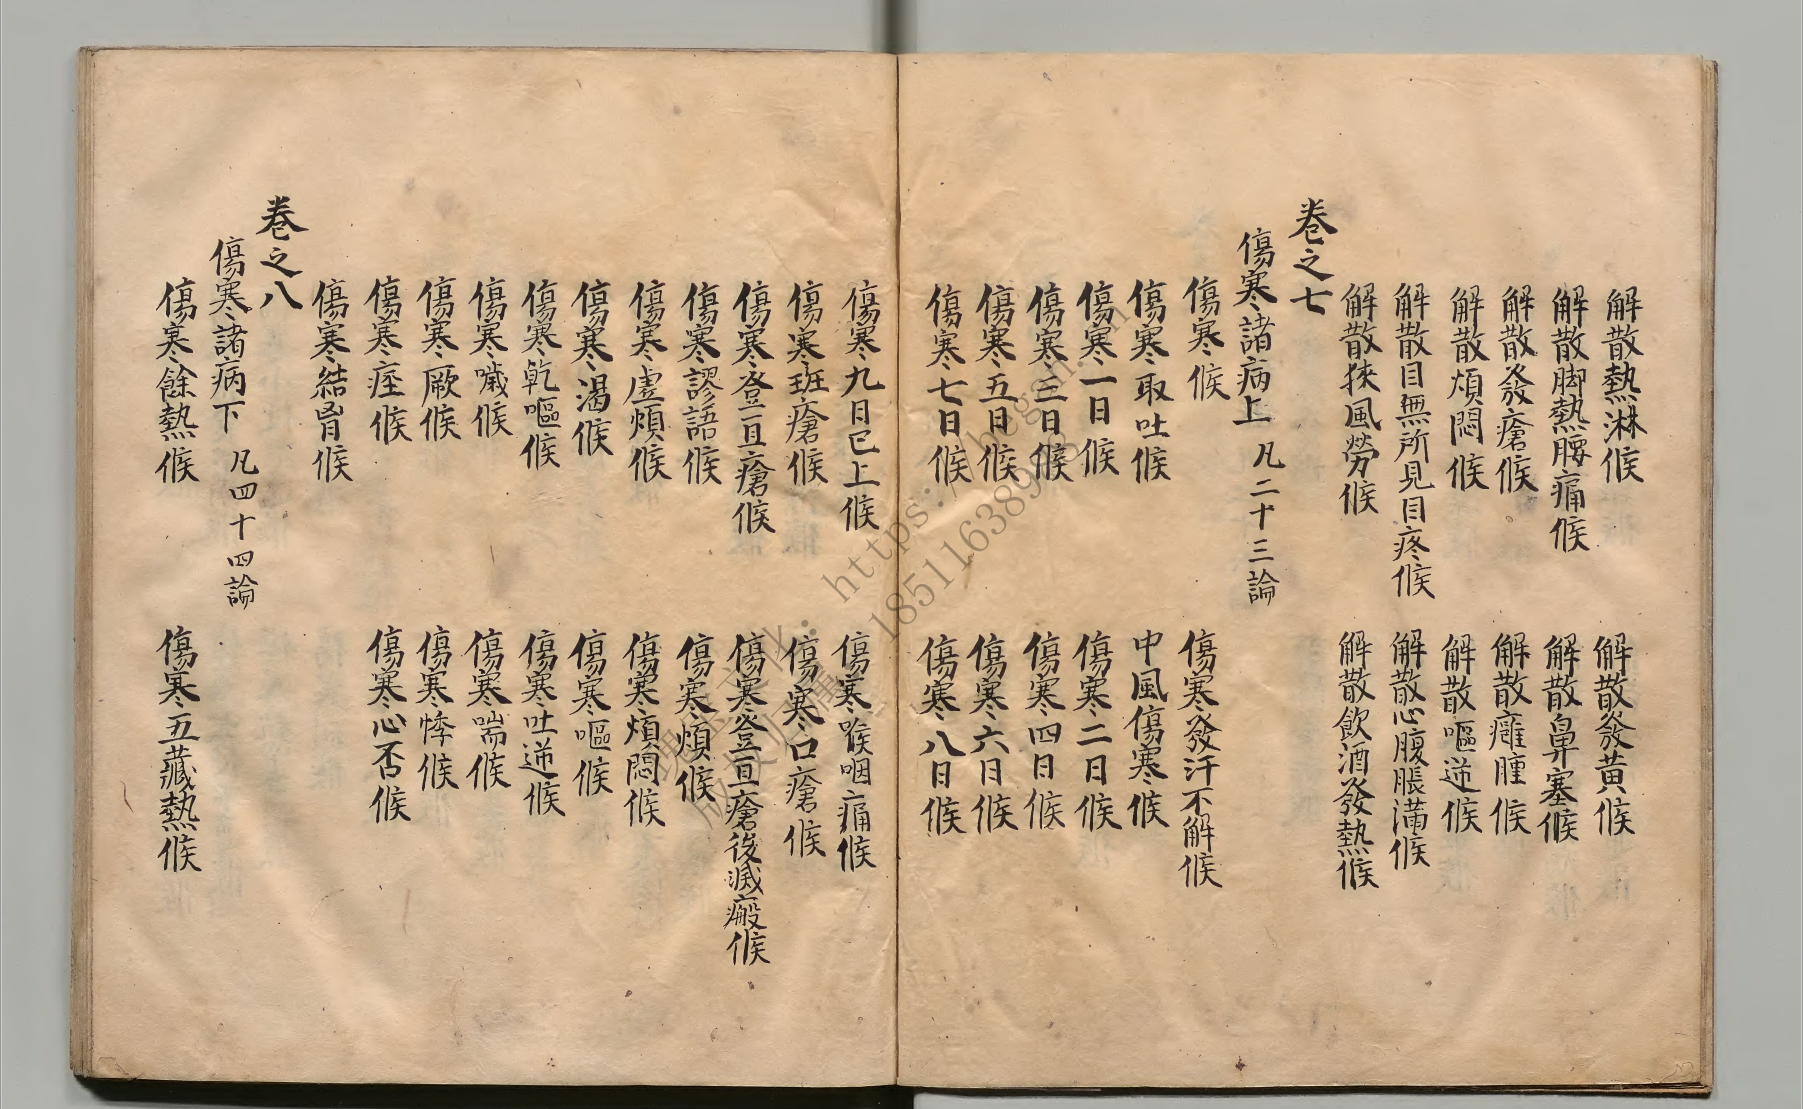 解散熱淋候　解散發黃候
解散脚熱腰痛候　解散鼻塞候
解散發瘡候　解散癰腫候
解散煩悶候　解散嘔逆候
解散目無所見目疼候　解散心腹脹滿候
解散挾風勞候　解散飲酒發熱候
卷之七
傷寒諸病上　凡二十三論
傷寒候　傷寒發汗不解候
傷寒取吐候　中風傷寒候
傷寒一日候　傷寒二日候
傷寒三日候　傷寒四日候
傷寒五日候　傷寒六日候
傷寒七日候　傷寒八日候
傷寒九日已上候　傷寒喉咽痛候
傷寒斑瘡候　傷寒口瘡候
傷寒登豆瘡候　傷寒登豆瘡後滅瘢候
傷寒謬語候　傷寒煩候
傷寒虛煩候　傷寒煩悶候
傷寒渴候　傷寒嘔候
傷寒乾嘔候　傷寒吐逆候
傷寒噦候　傷寒喘候
傷寒厥候　傷寒悸候
傷寒痓候　傷寒心否候
傷寒結胷候
卷之八
傷寒諸病下　凡四十四論
傷寒餘熱候　傷寒五藏熱候
https://began.n
18511638903